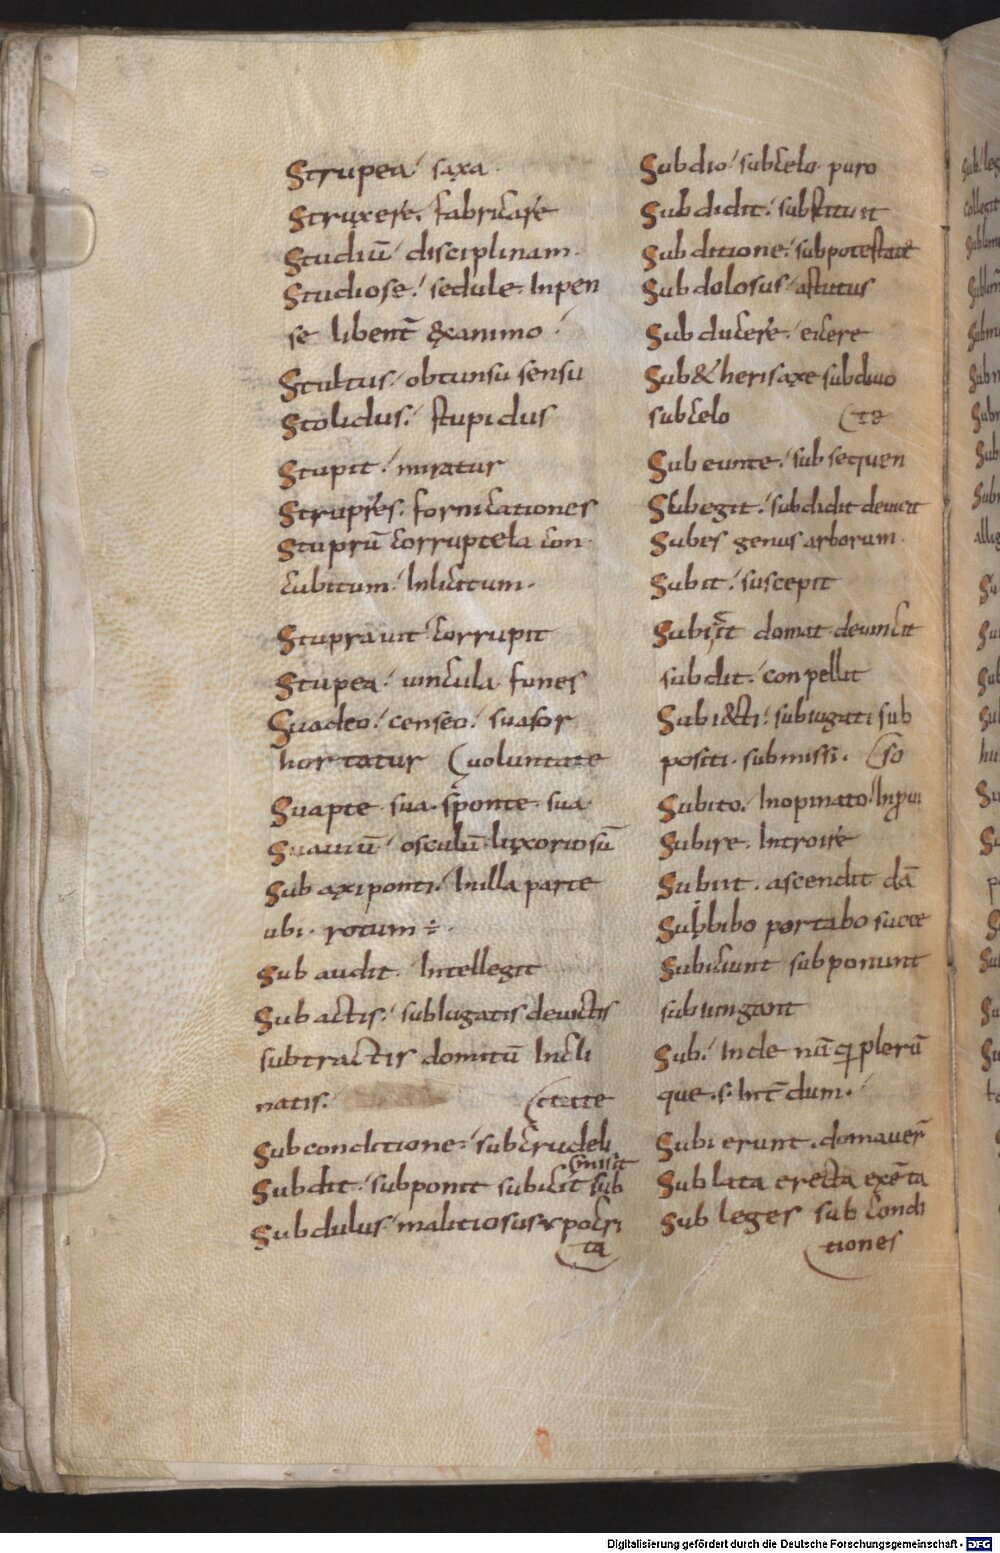 Strupea· saxa·
Struxere· fabricare
Studiū· disciplinam·
Studiose· sedule· Inpen
se libent̄ &xanimo·
Stultus· obtunsu sensu
Stolidus· stupidus
Stupit· miratur
Strupres· fornicationes
Stuprū corruptela con
cubitum· Inlicitum·
Stuprauit corrupit
Stupea· uincula funes
Suadeo· censeo· suasor
hortatur (uoluntate
Suapte· sua· sponte· sua·
Suauiū· osculū· luxoriosū
Sub axiponti· In illa parte
ubi· rotum ÷·
Sub audit· Intellegit
Sub actis· subIugatis deuictis
subtractis domitū Incli
natis· (itate
Subconditione· subcrudeli
(misit
Subdit· subponit subicit sub
Subdulus· malitiosus ypocri
(ta
Subdio· subcelo· puro
Subdidit· substituit
Subditione· subpotestate
Subdolosus· astutus
Subducere· eicere
Sub&heris axe subdiuo
subcelo (te
Sub eunte· subsequen
Subegit· subdidit deuicit
Subes genus arborum·
Subit· suscepit
Subicit domat· deuincit
subdit· conpellit
Subi&cti· subiugati sub
positi· submissi· (so
Subito· Inopinato· Inpui
Subire· Introire
Subiit· ascendit dā
Subbibo portabo succe
Subiciunt subponunt
subiungant
Sub· Inde nūcꝗ plerū
que· s· Int̄dum·
Subierunt· domauer̄
Sublata erecta exēta
Sub leges sub condi
(tiones
Digitalisierung gefördert durch die Deutsche Forschungsgemeinschaft - DFG